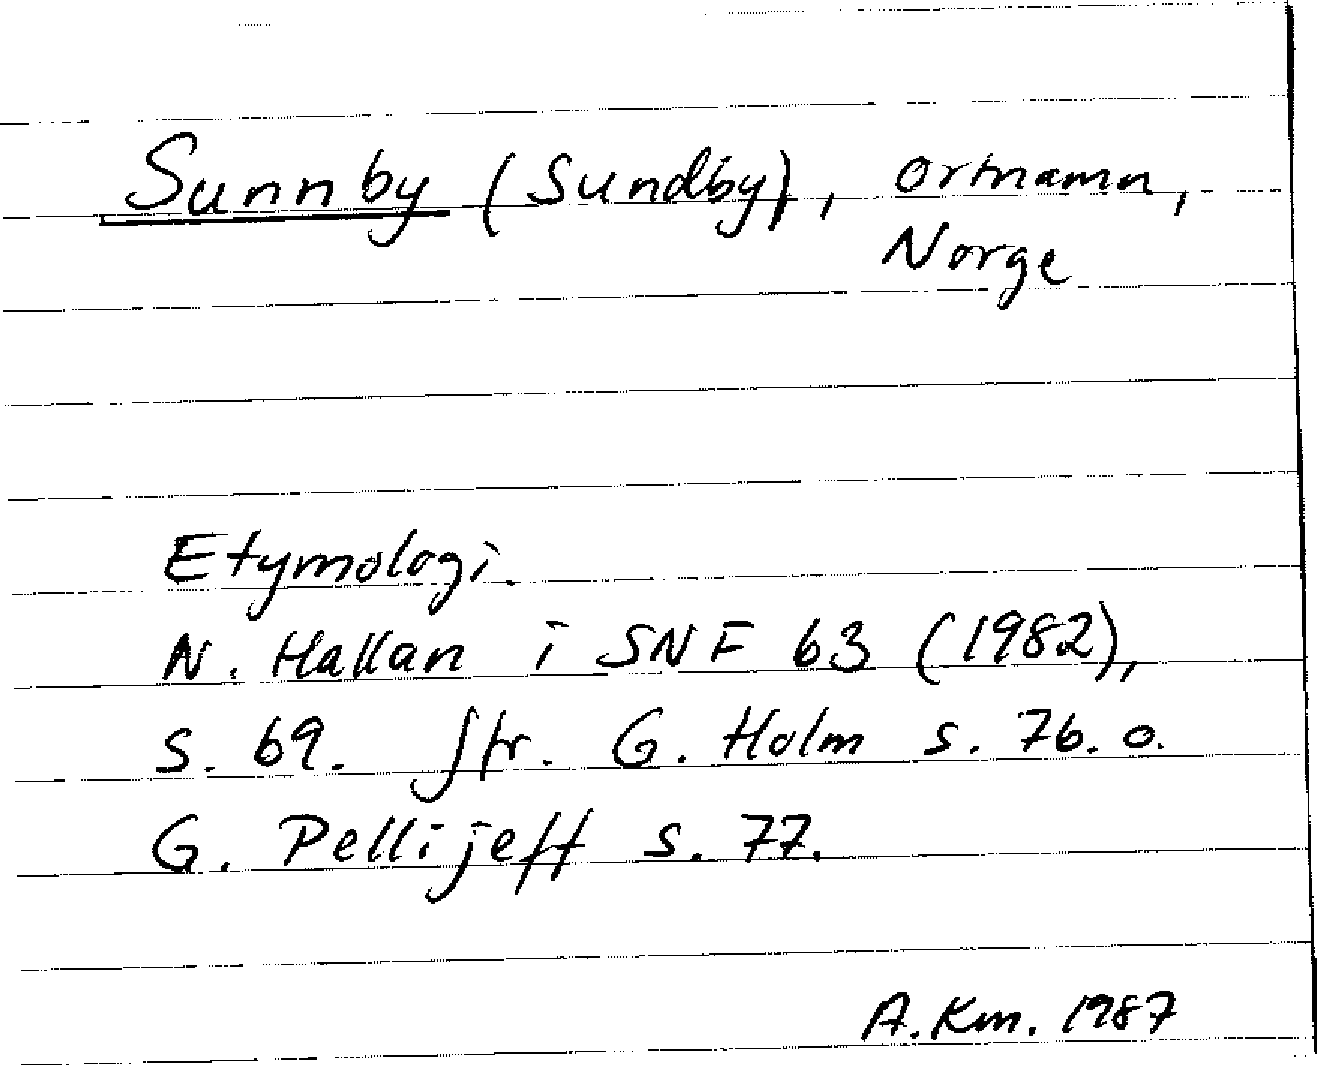 Sunnby (Sundby), ortnamn,
Norge
Etymologi.
N. Hallan i SNF 63 (1982),
s. 69. Jfr. G. Holm s. 76. o.
G. Pellijeff s. 77.
A. Km. 1987